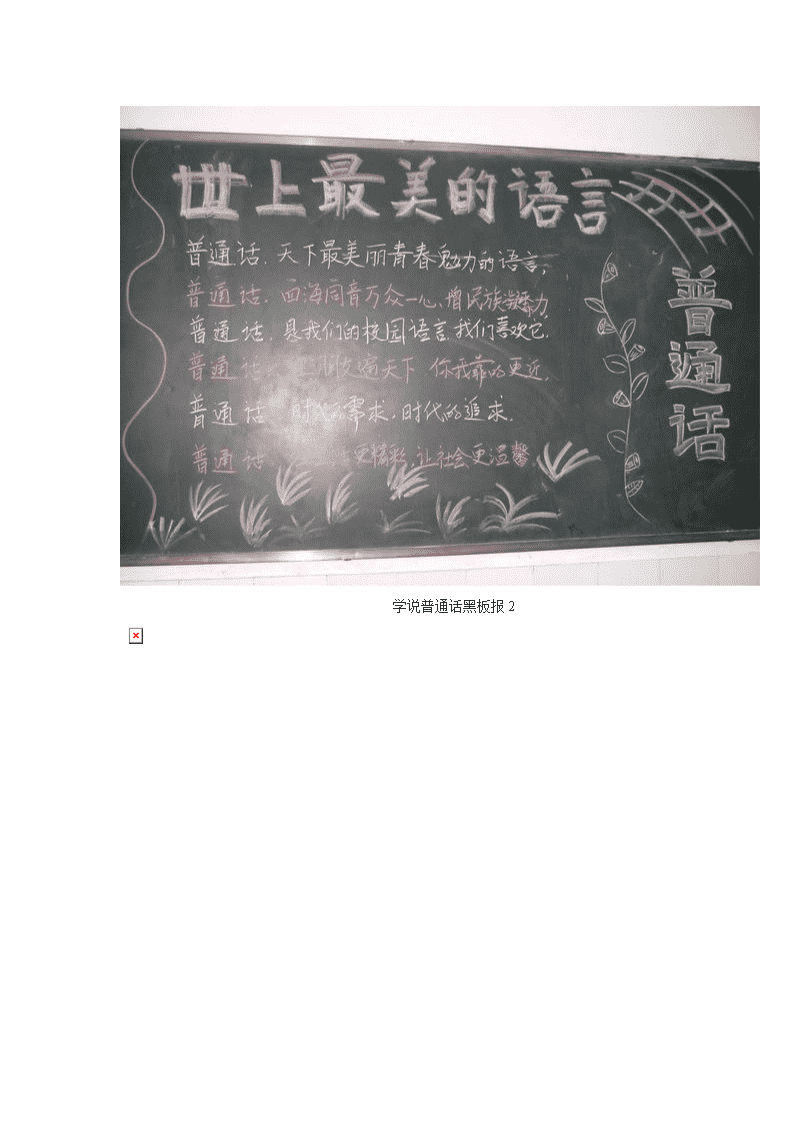 世上最美的语言
普通话,天下最美丽青春魅力的语言,
普通话,四海同音万众一心,增民族凝聚力
普通话,是我们的校园语言,我们喜欢它.
普通话 朋友遍天下 你我靠的更近,
普通话 时代的需求,时代的追求.
普通话 更精彩,让社会更温馨
普通话
学说普通话黑板报 2